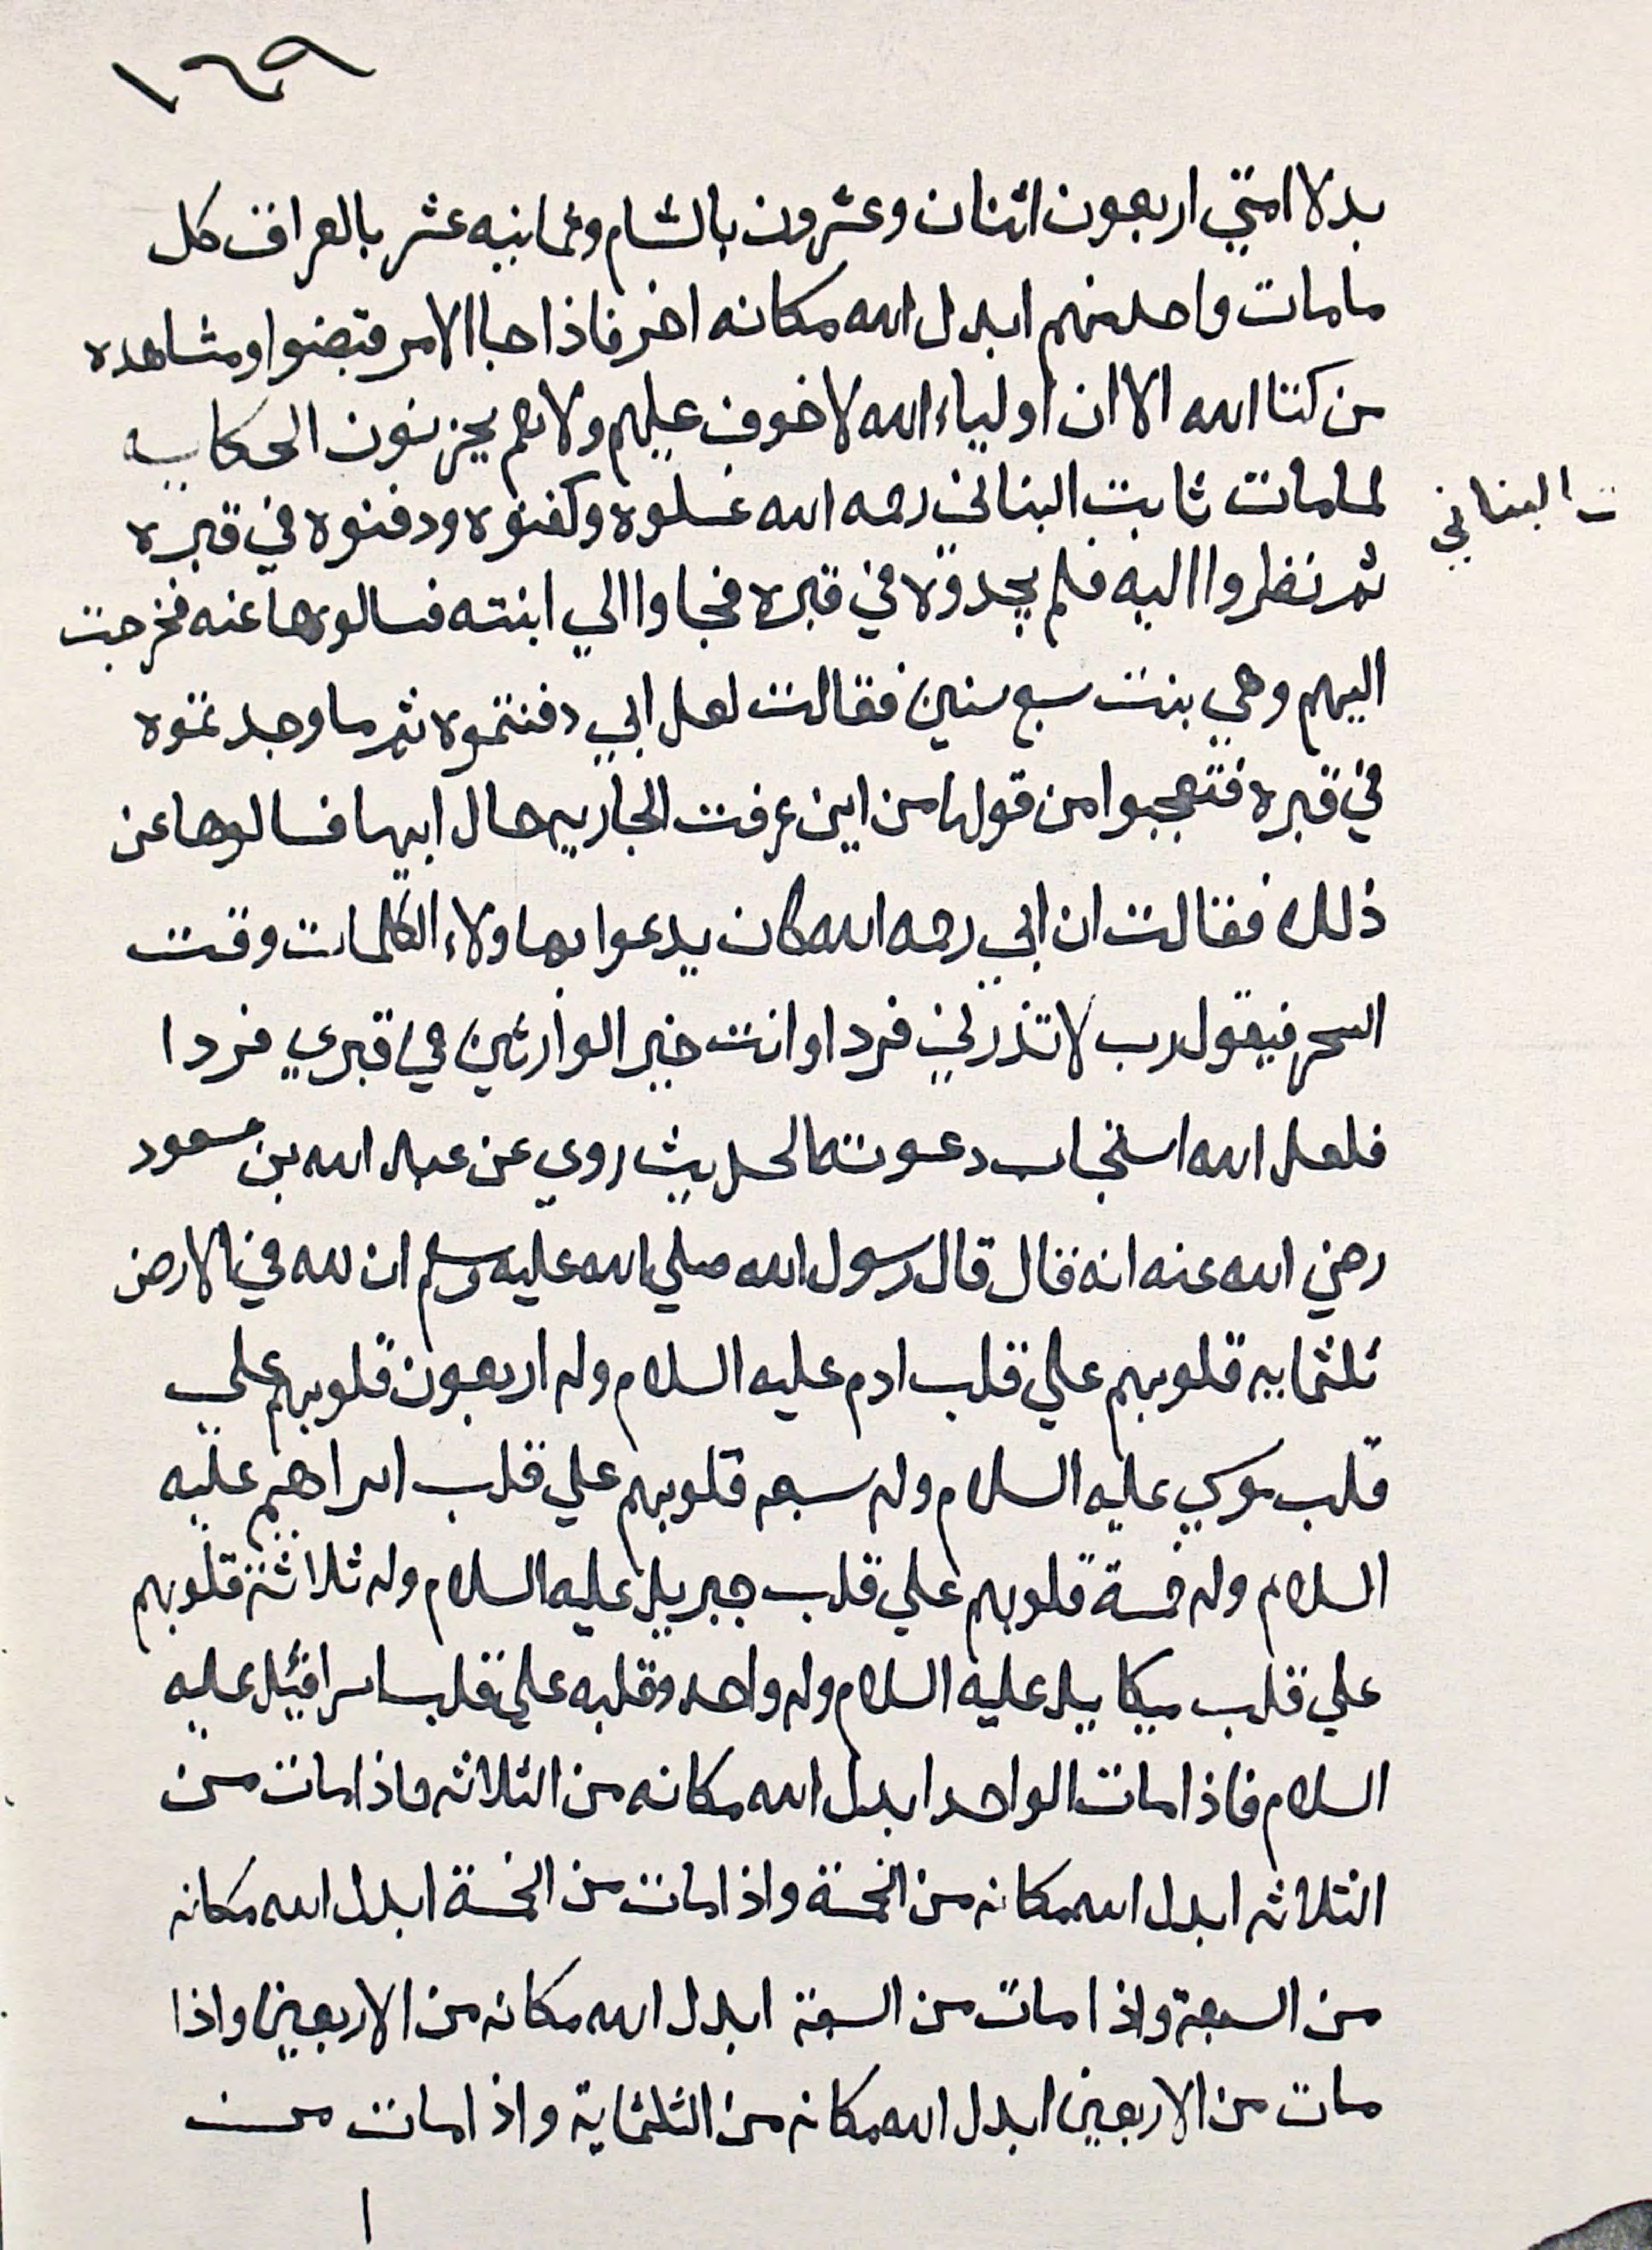 ١٦٩
بدلا امتي اربعون اثنان وعشرون بالشام وثمانيه عشر بالعراق كل
ما مات واحد منهم ابدل الله مكانه اخر فاذا جا الامر قبضوا ومشاهده
من كتا الله الا ان اولياء الله لا خوف عليهم ولا هم يحزنون الحكايه
لما مات ثابت البناني رحمه الله غسلوه وكفنوه ودفنوه في قبره
ت البناني
ثم نظروا اليه فلم يجدوه في قبره فجاوا الي ابنته فسالوها عنه فخرجت
اليهم وهي بنت سبع سنين فقالت لعل ابي دفنتموه ثم ما وجدتموه
في قبره فتعجبوا من قولها من اين عرفت الجاريه حال ابيها فسالوها عن
ذلك فقالت ان ابي رحمه الله كان يدعوا بهاولاء الكلمات وقت
السحر فيقول رب لا تذرني فردا وانت خير الوارثين في قبري فردا
فلعل الله استجاب دعوته الحديث روي عن عبد الله بن مسعود
رضي الله عنه انه قال قال رسول الله صلي الله عليه وسلم ان لله في الارض
ثلثمايه قلوبهم علي قلب ادم عليه السلام وله اربعون قلوبهم علي
قلب موسي عليه السلام وله سبعه قلوبهم علي قلب ابراهيم عليه
السلام وله خمسة قلوبهم علي قلب جبريل عليه السلام وله ثلاثة قلوبهم
علي قلب ميكاييل عليه السلام وله واحد وقلبه علي قلب اسرافئيل عليه
السلام فاذا مات الواحد ابدل الله مكانه من الثلاثه واذا مات من
الثلاثه ابدل الله مكانه من الخمسة واذا مات من الخمسة ابدل الله مكانه
من السبعة واذا مات من السبعة ابدل الله مكانه من الاربعين واذا
مات من الاربعين ابدل الله مكانه من الثلثماية واذا مات من
ا